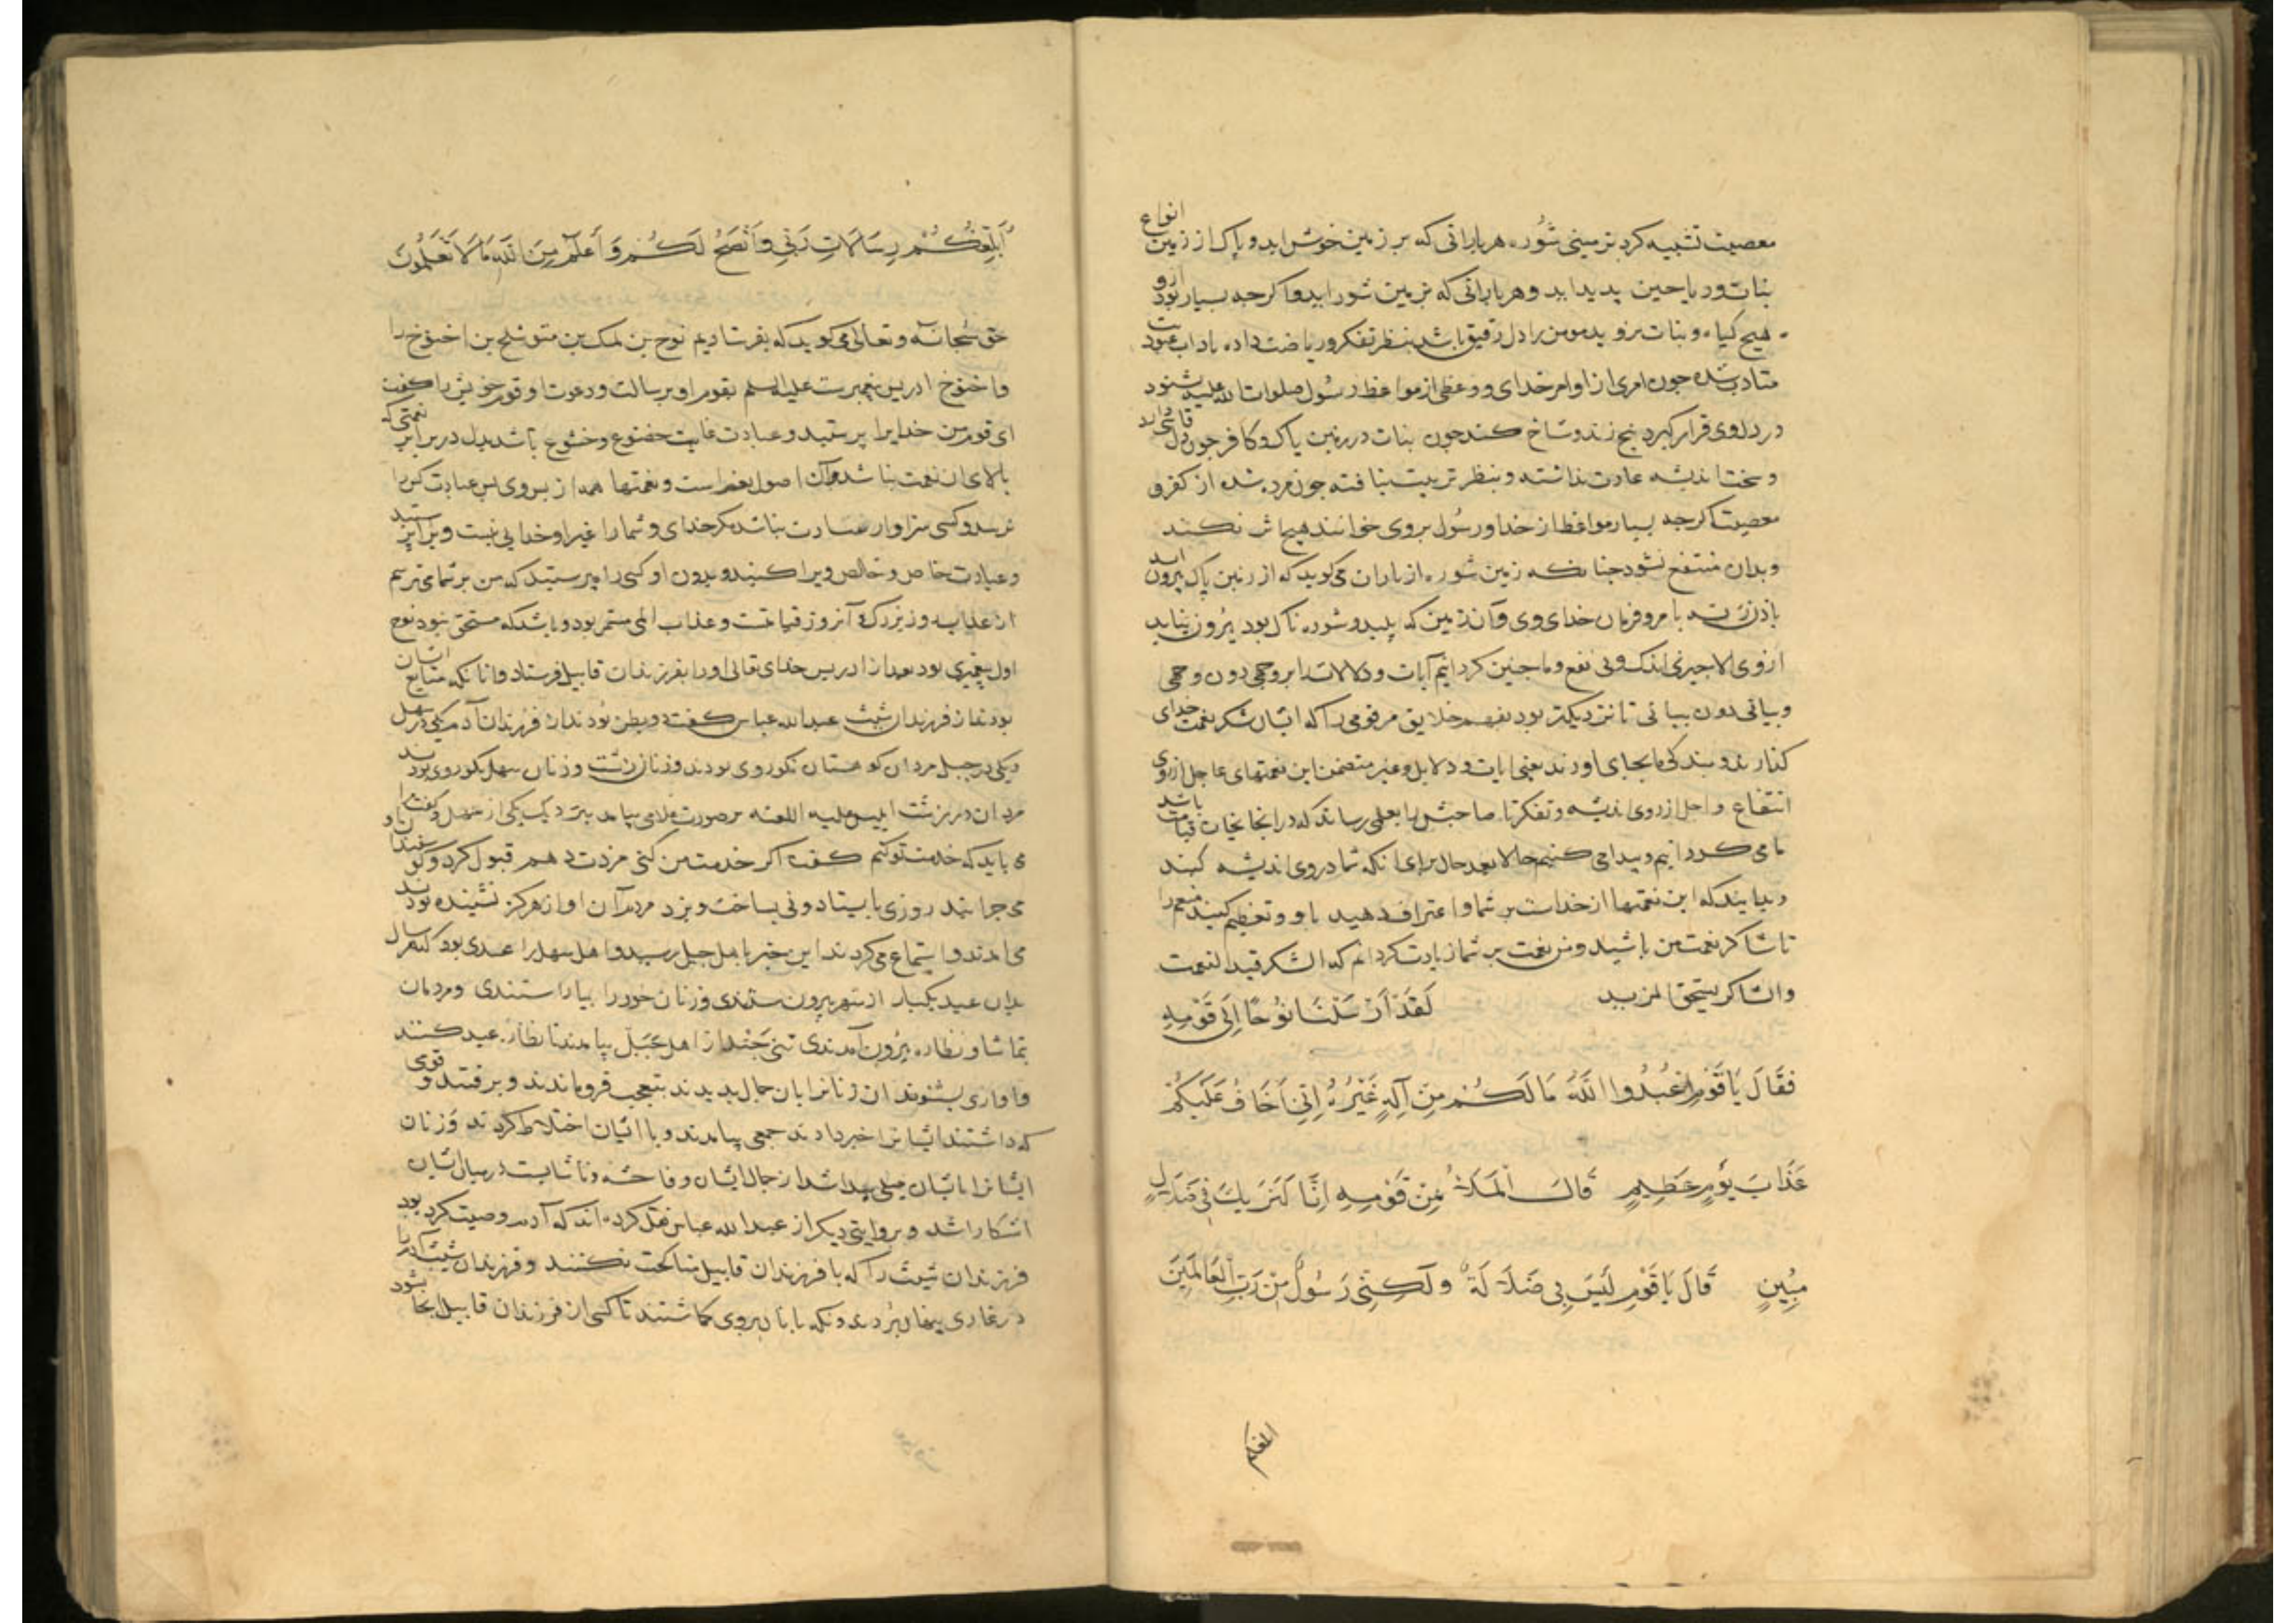 معصیت تشبیه کرد بزمینی شوره هر بارانی که بر زمین خوش اید و پاک از زمین انواع
نبات و ریاحین پدید اید و هر بارانی که بزمین شور اید و اکرجه بسیار بود ازو
هیچ کیاه و نبات نروید مومن را دل رقیق باشد بنظر تفکر و ریاضت داده باداب عبودیت
متادب شده جون امری از اوامر خدای و وعظی از مواعظ رسول صلوات الله علیه بشنود
در دل وی قرار کیرد بیخ زند و شاخ کند جون نبات در زمین پاک و کافر جون دل قاسی دارد
و سخت اندیشه عادت نداشته و بنظر تربیت نیافته جون مرده شده از کفر و
معصیت اکرجه بسیار مواعظ از خدا و رسول بر وی خوانند هیچ اثر نکند
و بدان منتفع نشود جنانکه زمین شوره از باران می کوید که از زمین پاک بیرون اید
باذن ربه بامر و فرمان خدای وی و آن زمین که پلید و شوره ناک بود بیرون نیاید
از وی الا جیزی اندک و بی نفع و ما جنین کردانیم آیات و دلالات را بر وجهی دون وجهی
و بیانی دون بیانی تا نزدیکتر بود بفهم خلایق مر قومی را که ایشان شکر نعمت خدای
کذارند و بندکی ما بجای اورند یعنی ایات و دلایل و عبر متضمن این نعمتهای عاجل از روی
انتفاع و اجل از روی اندیشه و تفکر تا صاحبش را بعلمی رساند که در انجا نجات قیامت باشد
ما می کردانیم و پیدا می کنیم حالا بعد حال برای انکه تا شما در وی اندیشه کنید
و بدانید که این نعمتها از خداست بر شما و اعتراف دهید باو و تعظیم کنید منعم را
تا شاکر نعمت من باشید و من نعمت بر شما زیادت کردانم که الشکر قید النعمت
والشاکر یستحق المزید لَقَدْ اَرْسَلْنَا نُوحًا اِلَی قَوْمِهِ
فَقَالَ یَا قَوْمِ اعْبُدُوا اللَّهَ مَا لَکُمْ مِنْ اِلَهٍ غَیْرُهُ اِنِّی اَخَافُ عَلَیْکُمْ
عَذَابَ یَوْمٍ عَظِیمٍ قَالَ الْمَلَأُ مِنْ قَوْمِهِ اِنَّا لَنَرَیکَ فِی ضَلَالٍ
مُبِینٍ قَالَ یَا قَوْمِ لَیْسَ بِی ضَلَالَةٌ وَلَکِنِّی رَسُولٌ مِنْ رَبِّ الْعَالَمِینَ
اُبَلِّغُکُمْ رِسَالَاتِ رَبِّی وَاَنْصَحُ لَکُمْ وَاَعْلَمُ مِنَ اللَّهِ مَا لَا تَعْلَمُونَ
حق سُبحانه و تعالی می کوید که بفرستادیم نوح بن لمک بن متوشلخ بن اخنوخ را
و اخنوخ ادریس پیغمبرست علیه السلم بقوم او برسالت و دعوت او قوم خویش را کفت
ای قوم من خدایرا پرستید و عبادت غایت خضوع و خشوع باشد بدل در برابر نعمتی که
بالای ان نعمت نباشد و آن اصول نعم است و نعمتها همه از بروی پس عبادت کس را
نرسد و کسی سزاوار عبادت نباشد مکر خدای و شما را غیر او خدایی نیست ویرا پرستید
و عبادت خاص و خالص ویرا کنید و بدون او کسی را مپرستید که من بر شما می ترسم
از عذاب روز بزرک و آن روز قیامتست و عذاب المی مستمر بود و باشد که مستحق بود نوح
اول پیغمبری بود بعد از ادریس خدای تعالی اورا بفرزندان قابیل فرستاد و انانکه متابع ایشان
بودند از فرزندان شیث عبدالله عباس کفت دو بطن بودند از فرزندان آدم یکی در سهل
و یکی در جبل مردان کوهستان نکوروی بودند و زنان زشت و زنان سهل نکوروی بودند
مردان زشت ابلیس علیه اللعنه بر صورت غلامی بیامد بنزدیک یکی از سهل و کفت مرا
می باید که خدمت تو کنم کفت اکر خدمت من کنی مزدت دهم قبول کرد و کوسفندان او
می جرانید روزی بایستاد و نی بساخت و بزد مردم آن اواز هرکز نشنیده بودند
می امدند و استماع می کردند این خبر باهل جبل رسید و اهل سهل را عیدی بود که هر سال
بدان عید یکبار از شهر بیرون شدندی و زنان خود را بیاراستندی و مردمان
بتماشا و نظاره بیرون آمدندی تنی جند از اهل جبل بیامدند تا نظاره عید کنند
و اوازی بشنوند ان زنانرا بان جمال بدیدند بتعجب فرو ماندند و برفتند و قومی
که داشتند ایشانرا خبر دادند جمعی بیامدند و با ایشان اختلاط کردند و زنان
ایشانرا با ایشان میلی پیدا شد از جمال ایشان و فاحشه و ناشایست در میان ایشان
اشکارا شد و بروایتی دیکر از عبدالله عباس نقل کرده اند که آدم وصیت کرده بود
فرزندان شیث را که با فرزندان قابیل مناکحت نکنند و فرزندان شیث آدم را
در غاری پنهان بردند و نکهبانان بروی کماشتند تا کسی از فرزندان قابیل انجا نشود